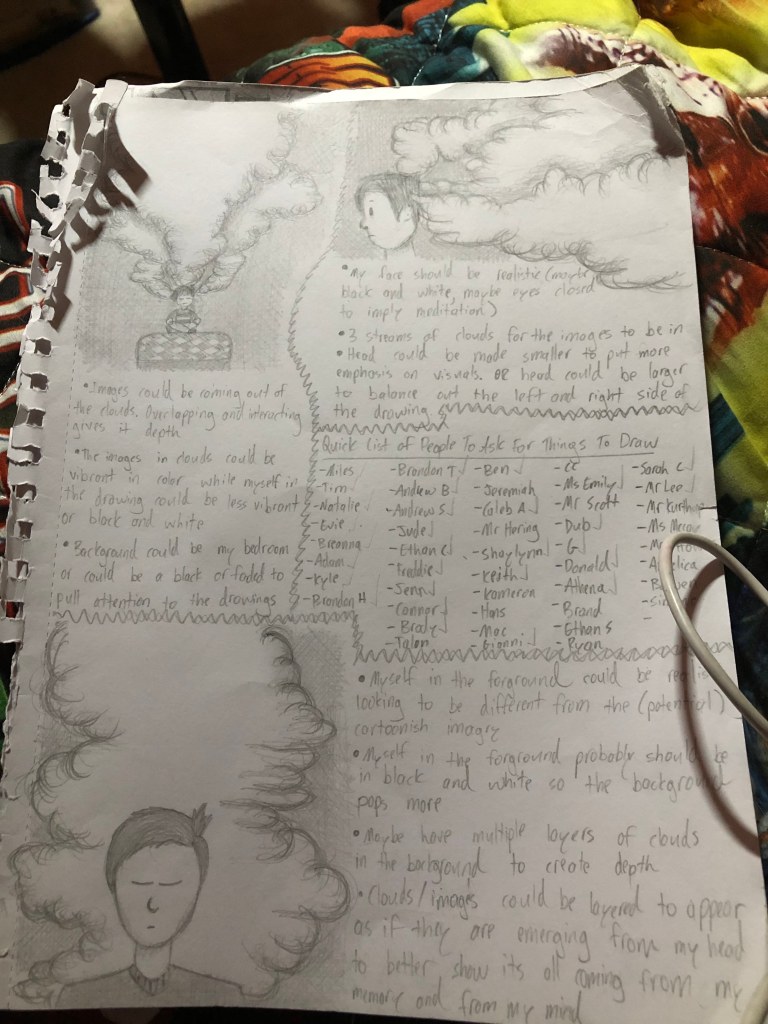 •My face should be realistic (maybe
black and white, maybe eyes closed
to imply meditation)
•3 streams of clouds for the images to be in
•Head could be made smaller to put more
emphasis on visuals. OR head could be larger
to balance out the left and right side of
the drawing
•Images could be coming out of
the clouds. Overlapping and interacting
gives it depth
•The images in clouds could be
vibrant in color while myself in
the drawing could be less vibrant
or black and white
•Background could be my bedroom
or could be a black or faded to
pull attention to the drawings
Quick List of People To Ask For Things To Draw
-Tim
-Natalie
-Evie
-Breanna
-Adam
-Kyle
-Brandon H
-Brandon T
-Andrew B
-Andrew S
-Jude
-Ethan C
-Freddie
-Jenn
-Connor
-Brody
-Talon
-Ben
-Jeremiah
-Caleb A
-Mr Hering
-Shaylynn
-Keith
-Kameron
-Hans
-Mac
-Gionni
-CC
-Ms Emily
-Mr Scott
-Dub
-G
-Donald
-Athena
-Brand
-Ethan S
-Ryan
-Sarah C
-Mr Leo
-Mr
-Ms
-
•Myself in the forground could be
looking to be different from the (potential)
cartoonish imagry
•Myself in the forground probably should be
in black and white so the background
pops more
•Maybe have multiple layers of clouds
in the background to create depth
•Clouds/images could be layered to appear
as if they are emerging from my head
to better show its all coming from my
memory and from my mind